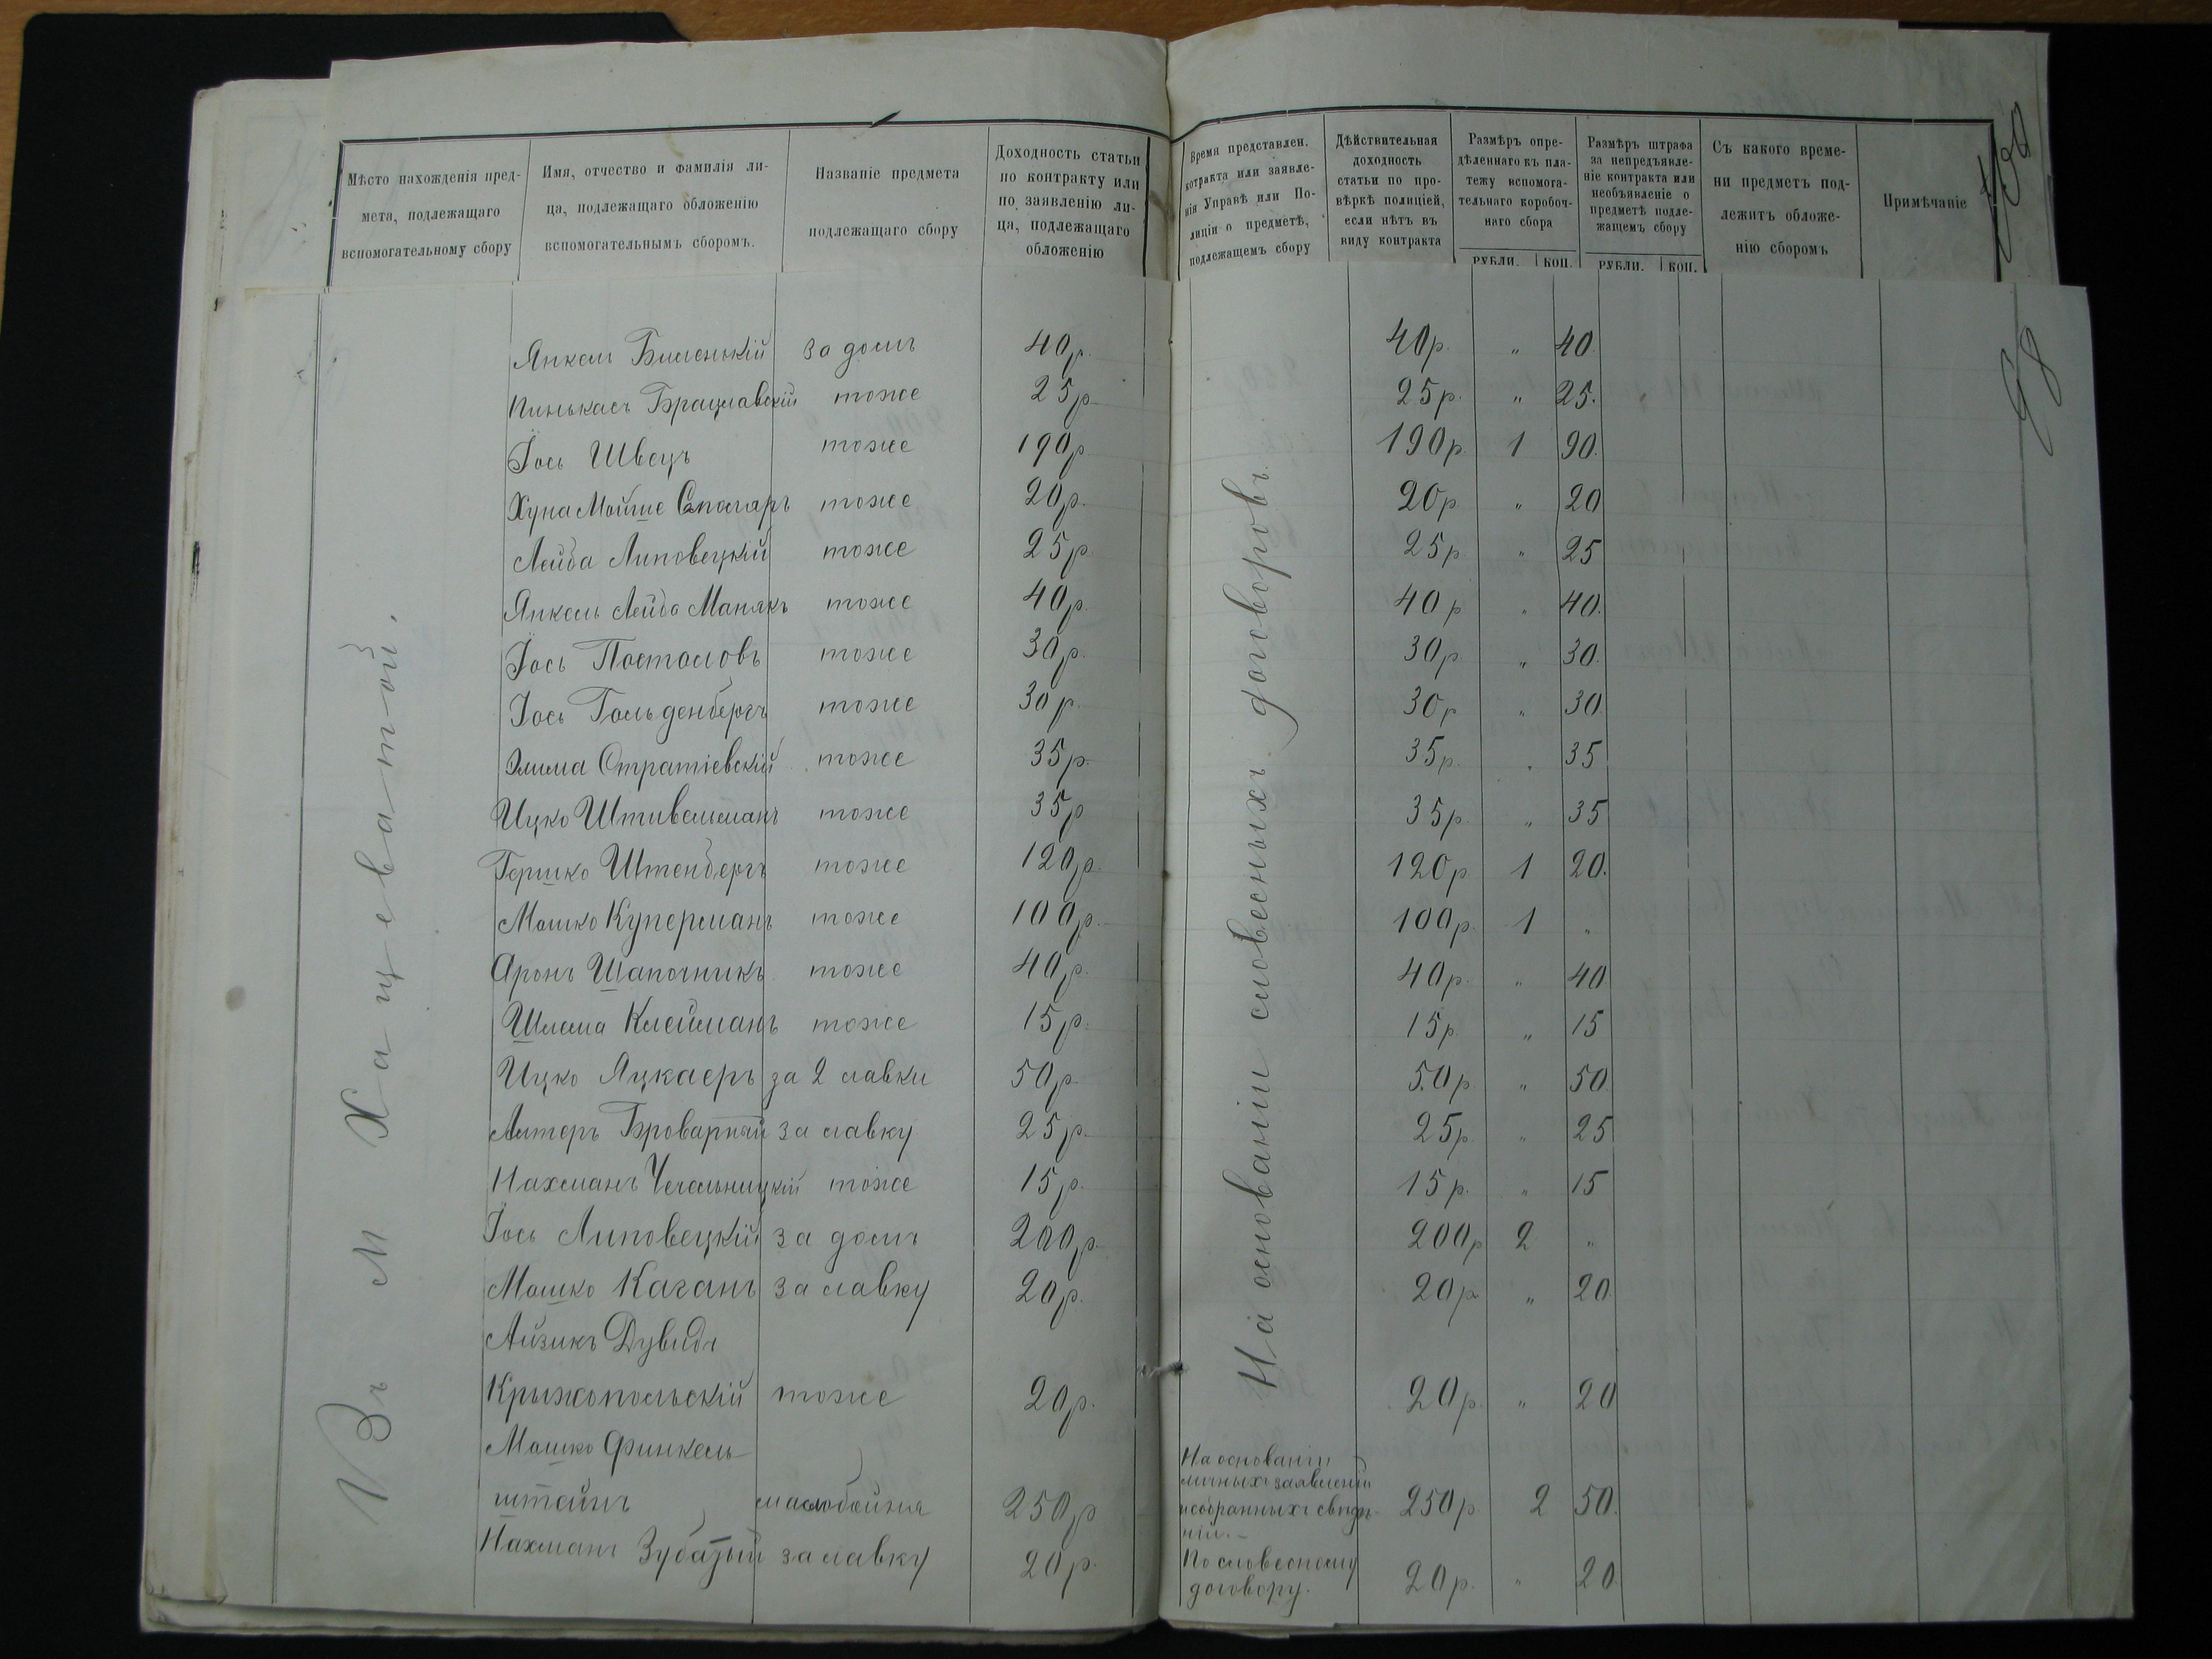 Мѣсто нахожденія пред-
мета, подлежащаго
вспомогательному сбору
Имя, отчество и фамилія ли-
ца, подлежащаго обложенію
вспомогательнымъ сборомъ.
Названіе предмета
подлежащаго сбору
Доходность статьи
по контракту или
по заявленію ли-
ца, подлежащаго
обложенію
Время представлен.
котракта или заявле-
нія Управѣ или По-
лиціи о предметѣ,
подлежащемъ сбору
Дѣйствительная
доходность
статьи по про-
вѣркѣ полиціей,
если нѣтъ въ
виду контракта
Размѣръ опре-
дѣленнаго къ пла-
тежу вспомога-
тельнаго коробоч-
наго сбора
РУБЛИ. КОП.
Размѣръ штрафа
за непредъявле-
ніе контракта или
необъявленіе о
предметѣ подле-
жащемъ сбору
РУБЛИ. КОП.
Съ какого време-
ни предметъ под-
лежитъ обложе-
нію сборомъ
Примѣчаніе
98
Въ М Хащеватой.
На основаніи словесныхъ договоровъ.
Янкель Биленькій за домъ 40р. 40р. " 40.
Пинькасъ Брацлавскій тоже 25р. 25р. " 25.
Іось Швецъ тоже 190р. 190р. 1 90.
Хуна Мойше Столяръ тоже 20р. 20р. " 20
Лейба Липовецкій тоже 25р. 25р. " 25
Янкель Лейба Манякъ тоже 40р. 40р " 40.
Іось Постоловъ тоже 30р. 30р. " 30.
Іось Гольденбергъ тоже 30р. 30р " 30.
Элима Стратіевскій тоже 35р. 35р. " 35
Ицко Штивельманъ тоже 35р 35р. " 35
Гершко Штенбергъ тоже 120р. 120р. 1 20.
Мошко Куперманъ тоже 100р. 100р. 1 "
Аронъ Шапочникъ тоже 40р. 40р. " 40
Шлема Клейманъ тоже 15р. 15р. " 15
Ицко Яцкаеръ за 2 лавки 50р. 50р. " 50.
Алтеръ Броварный за лавку 25р. 25р. " 25
Нахманъ Чечельницкій тоже 15р. 15р. " 15
Іось Липовецкій за домъ 200р. 200р 2 "
Мошко Каганъ за лавку 20р. 20р. " 20.
Айзикъ Дувидъ
Крыжопольскій тоже 20р. 20р. " 20
Мошко Финкель-
штейнъ маслобойня 250р 250р. 2 50.
На основаніи
личныхъ заявленій
и собранныхъ свѣдѣ-
ній.-
Нахманъ Зубатый за лавку 20р. 20р. " 20.
По словесному
договору.